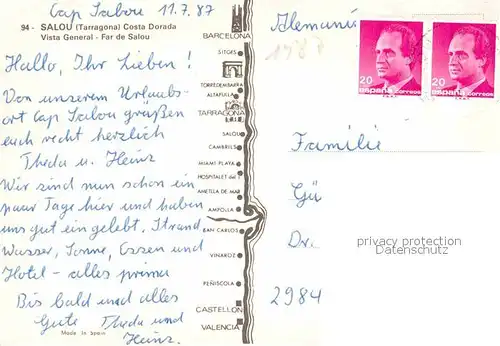 Cap Salou 11.7.87
94 - SALOU (Tarragona) Costa Dorada
Vista General - Far de Salou
Hallo, Ihr Lieben!
Von unserem Urlaubs-
ort Cap Salou grüßen
euch recht herzlich
Theda u. Heinz
Wir sind nun schon ein
paar Tage hier und haben
uns gut eingelebt. Strand
Wasser, Sonne, Essen und
Hotel - alles prima
Bis bald und alles
Gute Theda und
Heinz.
Made in Spain
BARCELONA
SITGES
TORREDEMBARRA
ALTAFULLA
TARRAGONA
SALOU
CAMBRILS
MIAMI-PLAYA
HOSPITALET del I.
AMETLLA DE MAR
AMPOLLA
SAN CARLOS
VINAROZ
PEÑISCOLA
CASTELLON
VALENCIA
Alemania
1987
20
ESPAÑA CORREOS
20
ESPAÑA CORREOS
Familie
Gü
Dr.
2984
privacy protection
Datenschutz